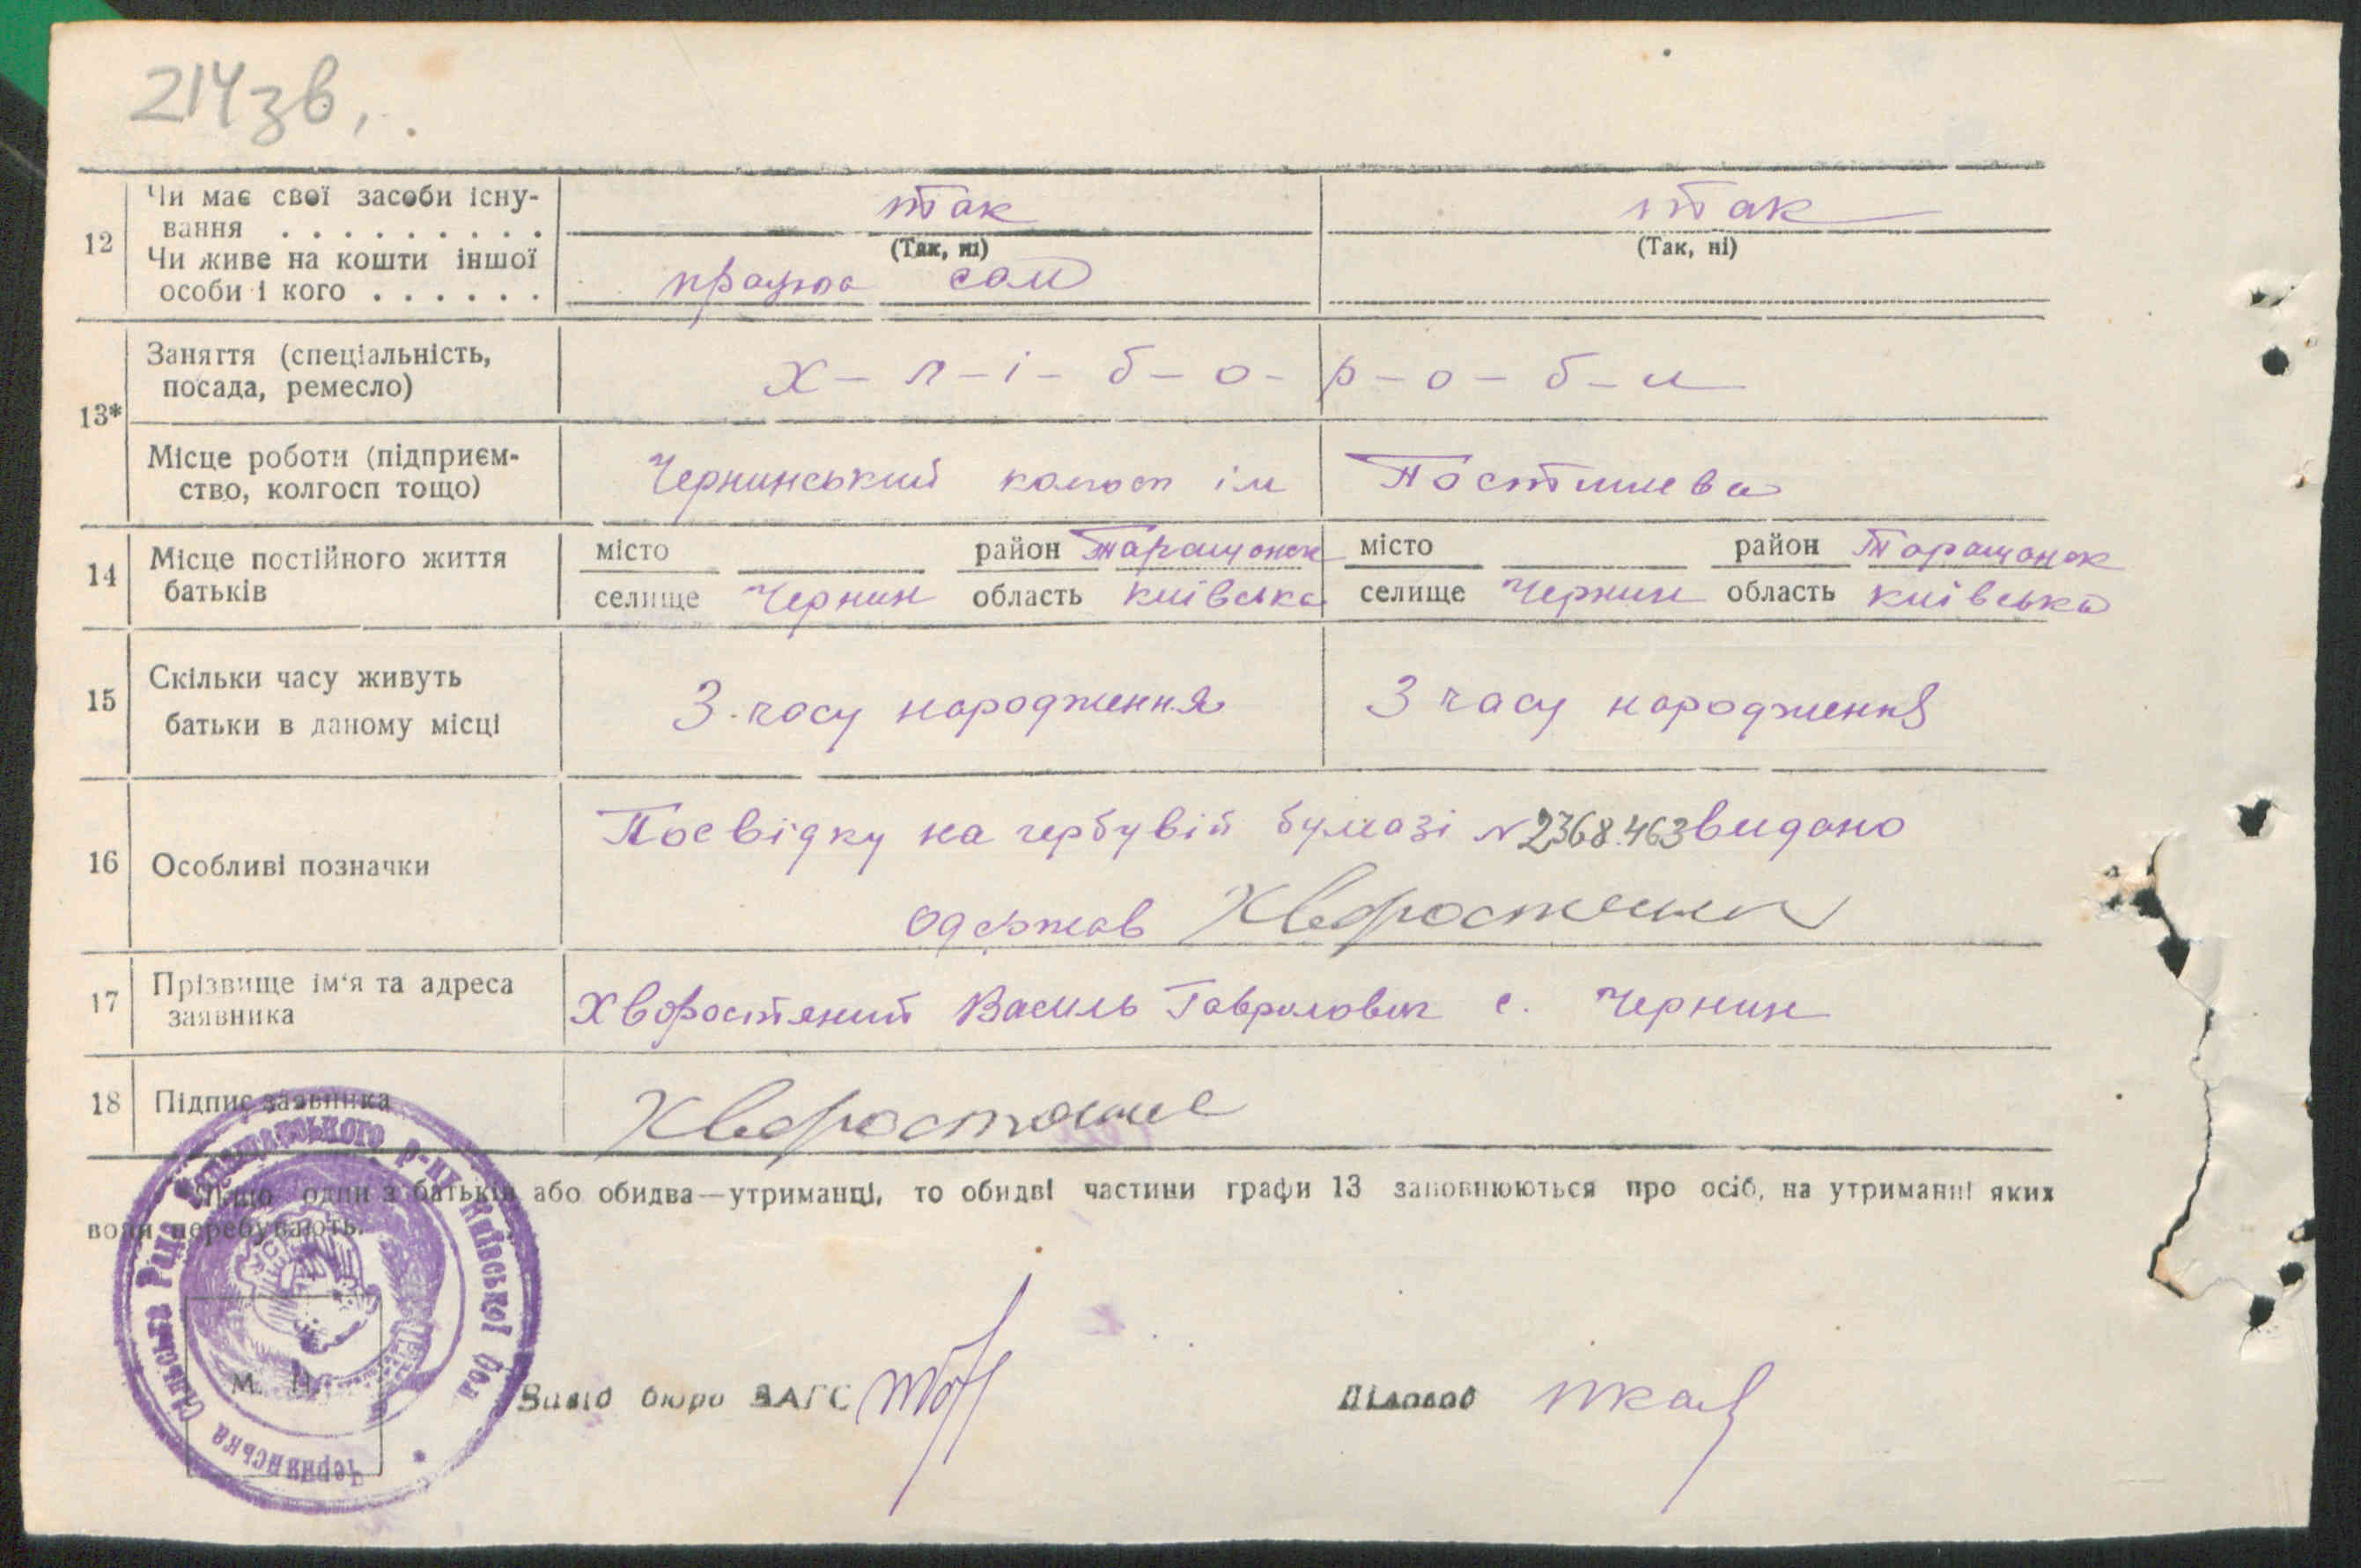 214зв.
12 Чи має свої засоби існу-
вання . . . . . . . . . так так
(Так, ні) (Так, ні)
Чи живе на кошти іншої
особи і кого . . . . . . працюа сам
13* Заняття (спеціальність,
посада, ремесло) х-л-і-б-о-р-о-б-и
Місце роботи (підприєм-
ство, колгосп тощо) Чернинський колгосп ім Постишева
14 Місце постійного життя
батьків
місто район Таращонск місто район Таращонск
селище Чернин область київська селище Чернин область київська
15 Скільки часу живуть
батьки в даному місці
З часу народження З часу народження
16 Особливі позначки
Посвідку на гербувій бумазі N 2368463 видано
одержав Хворостяни
17 Прізвище ім'я та адреса
заявника
Хворостяний Василь Гаврилович с. Чернин
18 Підпис заявника
Якщо один з батьків або обидва—утриманці, то обидві частини графи 13 заповнюються про осіб, на утриманні яких
вони перебувають.
Чернинська Сільська Рада р-ну Київської Обл
М. П.
Завід бюро ЗАГС Діловод